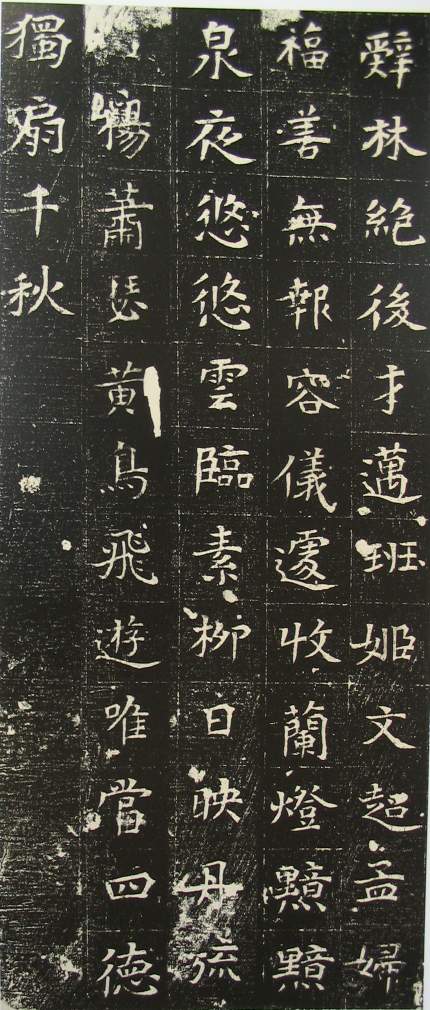 辭林絕後才邁班姬文超孟婦
福善無報容儀遽收蘭燈黯黯
泉夜悠悠雲臨素柳日映丹旒
楊蕭瑟黃鳥飛遊唯當四德
獨扇千秋